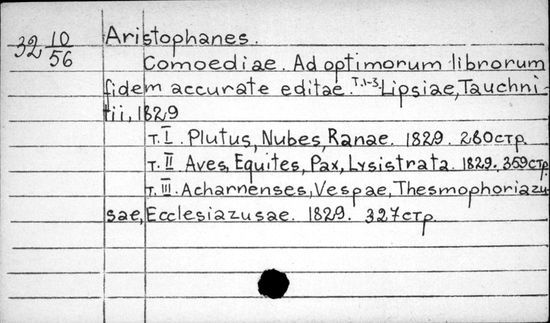 32 10/56 Aristophanes.
Comoediae. Ad optimorum librorum
fidem accurate editae. Т.1-3 Lipsiae, Tauchni-
tii, 1829
т. I. Plutus, Nubes, Ranae. 1829. 280 стр.
т. II. Aves, Equites, Pax, Lysistrata. 1829. 359 стр.
т. III. Acharnenses, Vespae, Thesmophoriazu
sae, Ecclesiazusae. 1829. 327 стр.